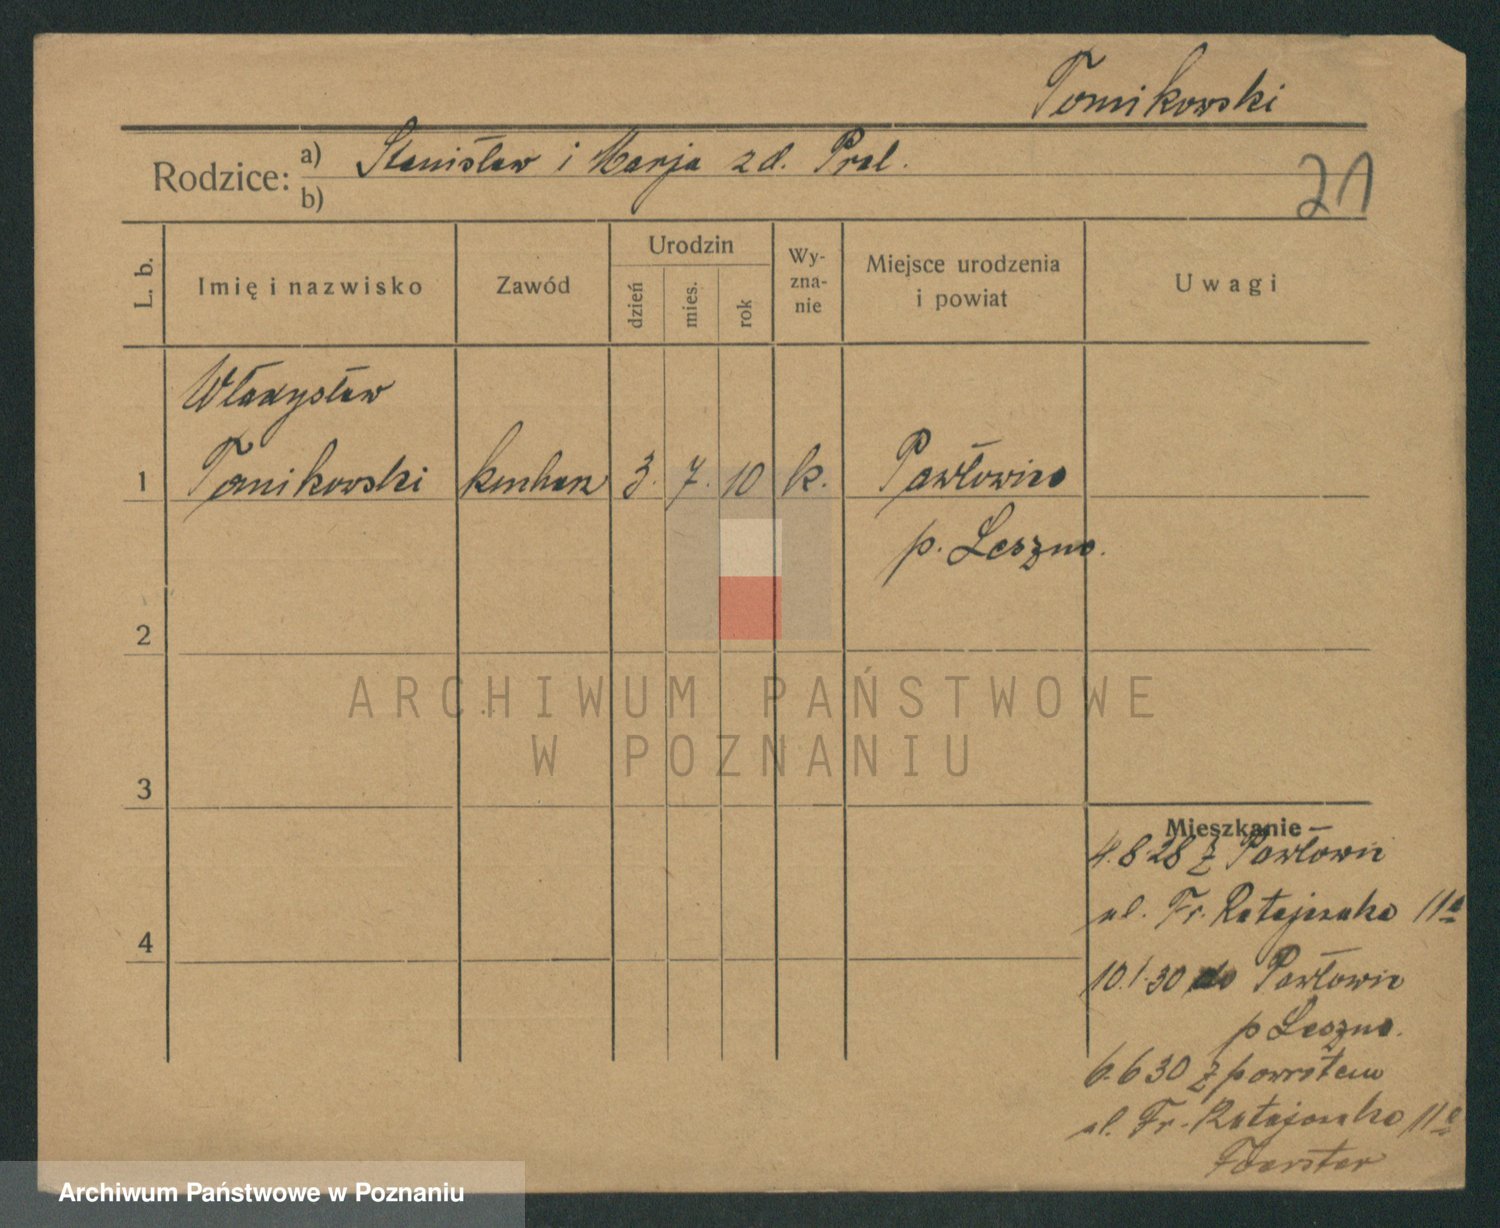 Tomikowski
Rodzice: a) Stanisław i Marja z d. Pral.
b)
21
L. b.
Imię i nazwisko
Zawód
Urodzin
dzień
mies.
rok
Wy-
zna-
nie
Miejsce urodzenia
i powiat
Uwagi
Władysław
1 Tomikowski kucharz 3. 7. 10 k. Pawłowice
p. Leszno.
2
ARCHIWUM PAŃSTWOWE
W POZNANIU
3
Mieszkanie
4.8.28 z Pawłowic
ul. Fr. Ratajczaka 11a
4
10.1.30 do Pawłowic
p Leszno.
6.6 30 z powrotem
ul. Fr. Ratajczaka 11a
Foerster
Archiwum Państwowe w Poznaniu